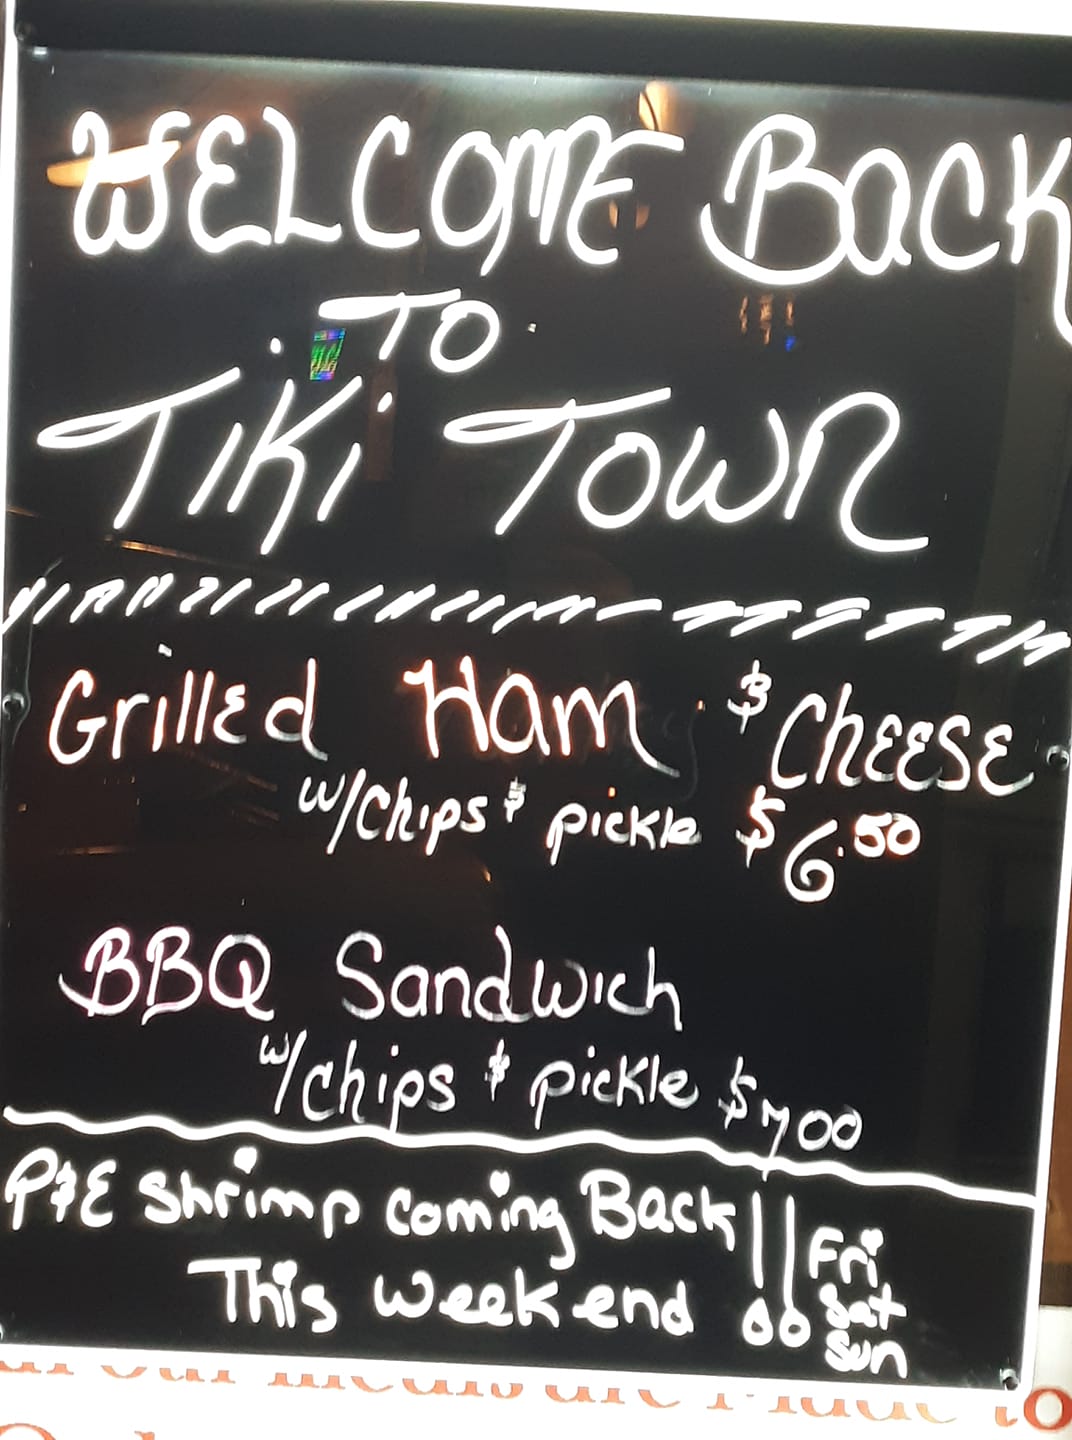 WELCOME BACK
TO
TIKI TOWN
Grilled Ham & CHEESE
w/chips & pickle $6.50
BBQ Sandwich
w/chips & pickle $7.00
P&E Shrimp Coming Back!!
This Weekend
Fri
Sat
Sun
all our meals are Made to